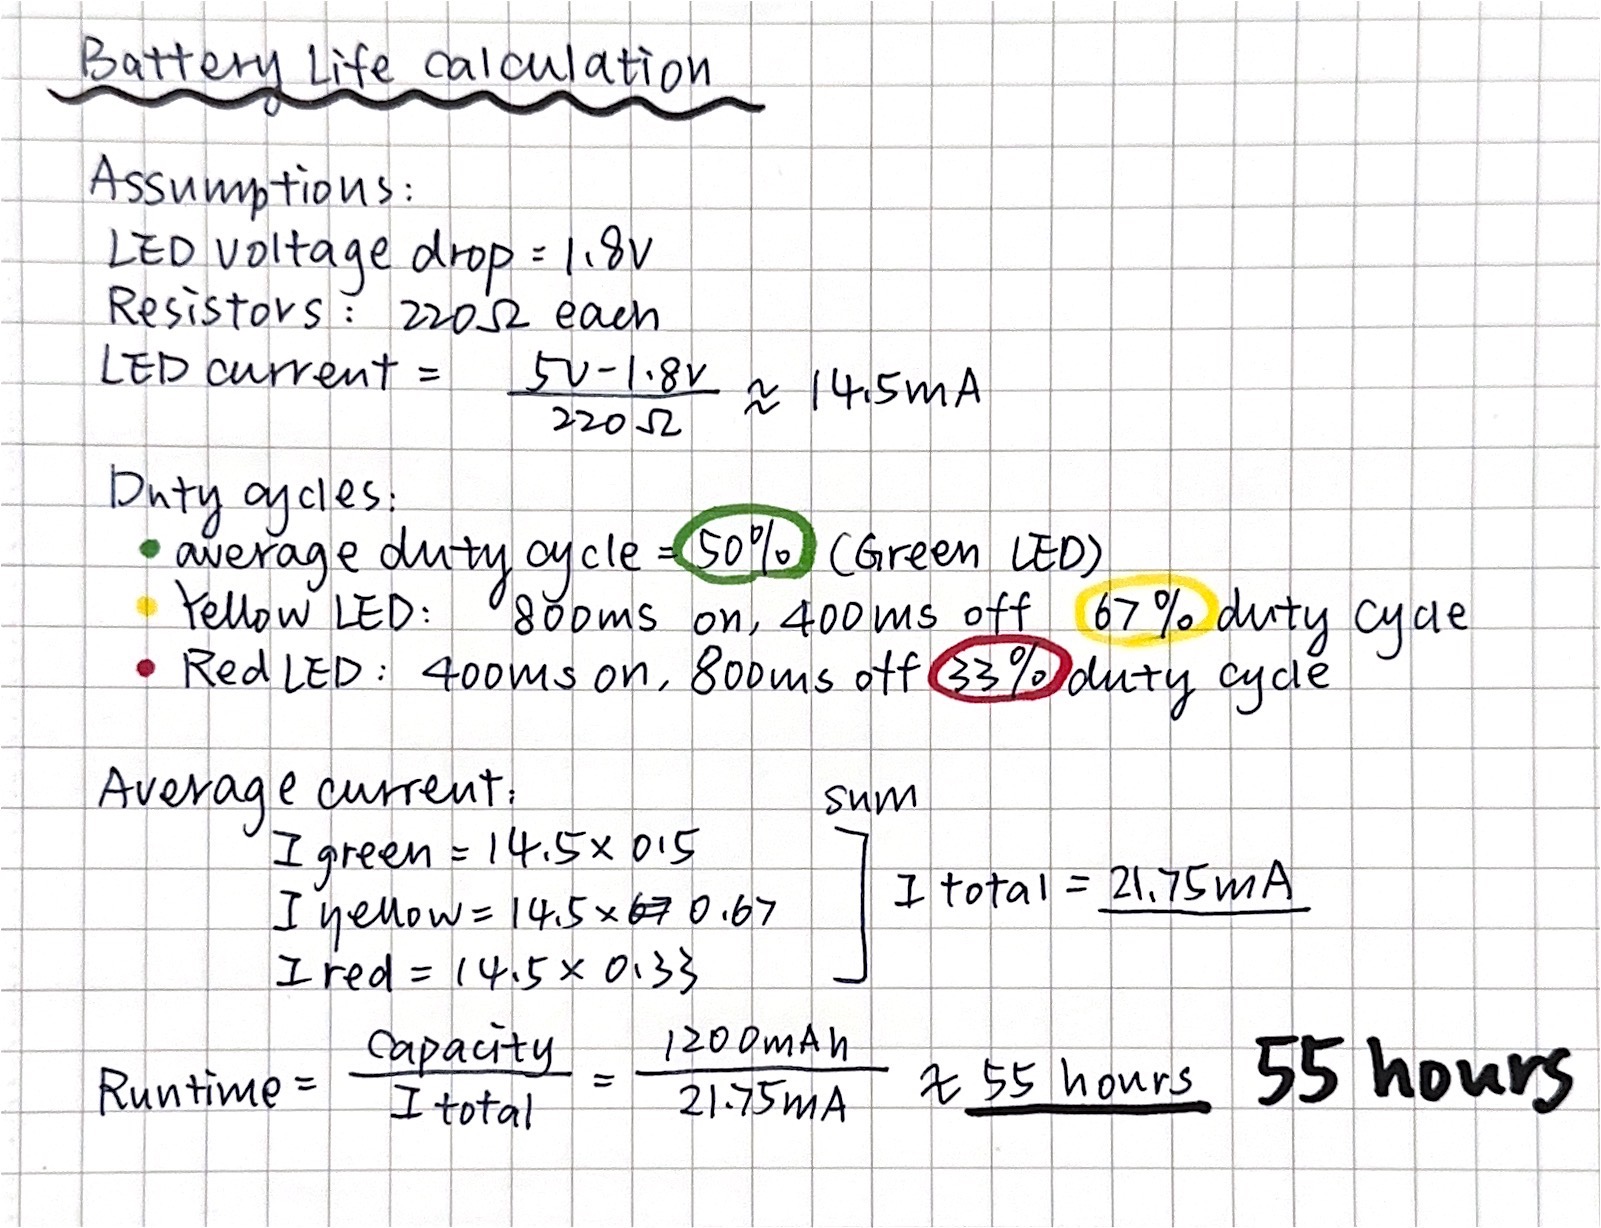 Battery Life calculation
Assumptions:
LED voltage drop = 1.8V
Resistors: 220Ω each
LED current = (5V-1.8V)/220Ω ≈ 14.5mA
Duty cycles:
• average duty cycle = 50% (Green LED)
• Yellow LED: 800ms on, 400ms off 67% duty cycle
• Red LED: 400ms on, 800ms off 33% duty cycle
Average current:
sum
I green = 14.5 x 0.5
I yellow = 14.5 x 67 0.67
I red = 14.5 x 0.33
I total = 21.75mA
Runtime = Capacity/I total = 1200mAh/21.75mA ≈ 55 hours 55 hours